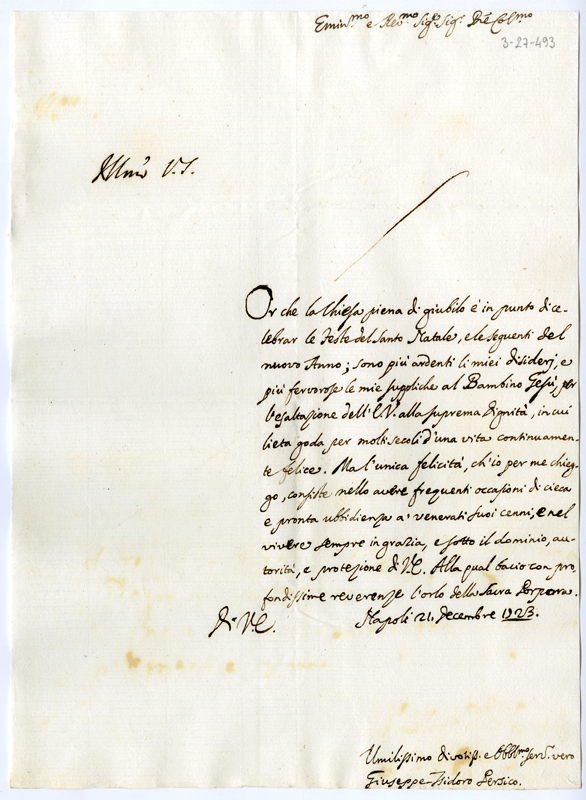 Emin.mo e Rev.mo Sig.r Sig.r Pne Col.mo
3-27-493
Or che la Chiesa piena di giubilo è in punto di ce-
lebrar le Feste del Santo Natale, e le seguenti del
nuovo Anno; sono più ardenti li miei disiderj, e
più fervorose le mie suppliche al Bambino Gesù, per
l'esaltazione dell'E.V. alla suprema dignità, in cui
lieta goda per molti secoli d'una vita continuamen-
te felice. Ma l'unica felicità, ch'io per me chieg-
go, consiste nello avere frequenti occasioni di cieca
e pronta ubbidienza a' venerati suoi cenni, e nel
vivere sempre in grazia, e sotto il dominio, au-
torità, e protezione di V.E. Alla qual bacio con pro-
fondissime reverenze l'orlo della Sacra Porpora.
Di V.E. Napoli 21. Decembre 1723.
Umilissimo divotiss. e Obbl.mo serv. vero
Giuseppe-Isidoro Persico.